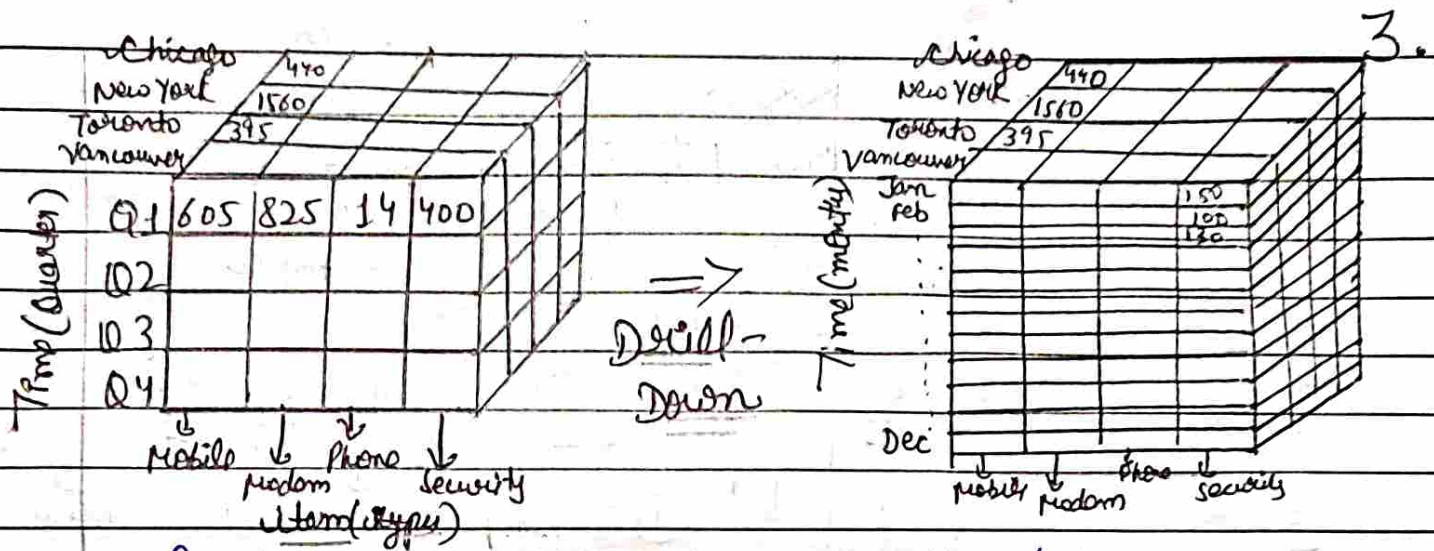 3.
Chicago
440
New York
1560
Toronto
395
Vancouver
Time (Quarter)
Q1 605 825 14 400
Q2
Q3
Q4
Mobile
Modem
Phone
Security
Item (types)
=>
Drill-
Down
Chicago
440
New York
1560
Toronto
395
Vancouver
Time (monthly)
Jan 150
Feb 100
Dec
Mobile
Modem
Phone
Security